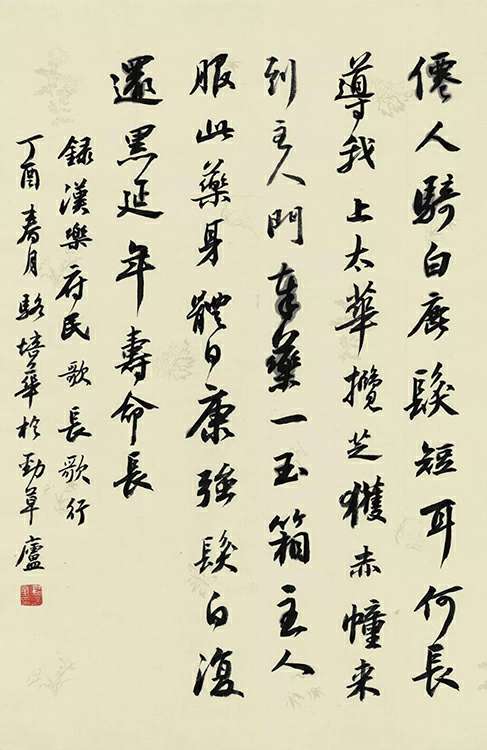 僊人騎白鹿髮短耳何長
導我上太華攬芝獲赤幢来
到主人門奉藥一玉箱主人
服此藥身體日康強髮白復
還黑延年壽命長
録漢樂府民歌長歌行
丁酉春月駱培華於勁草廬